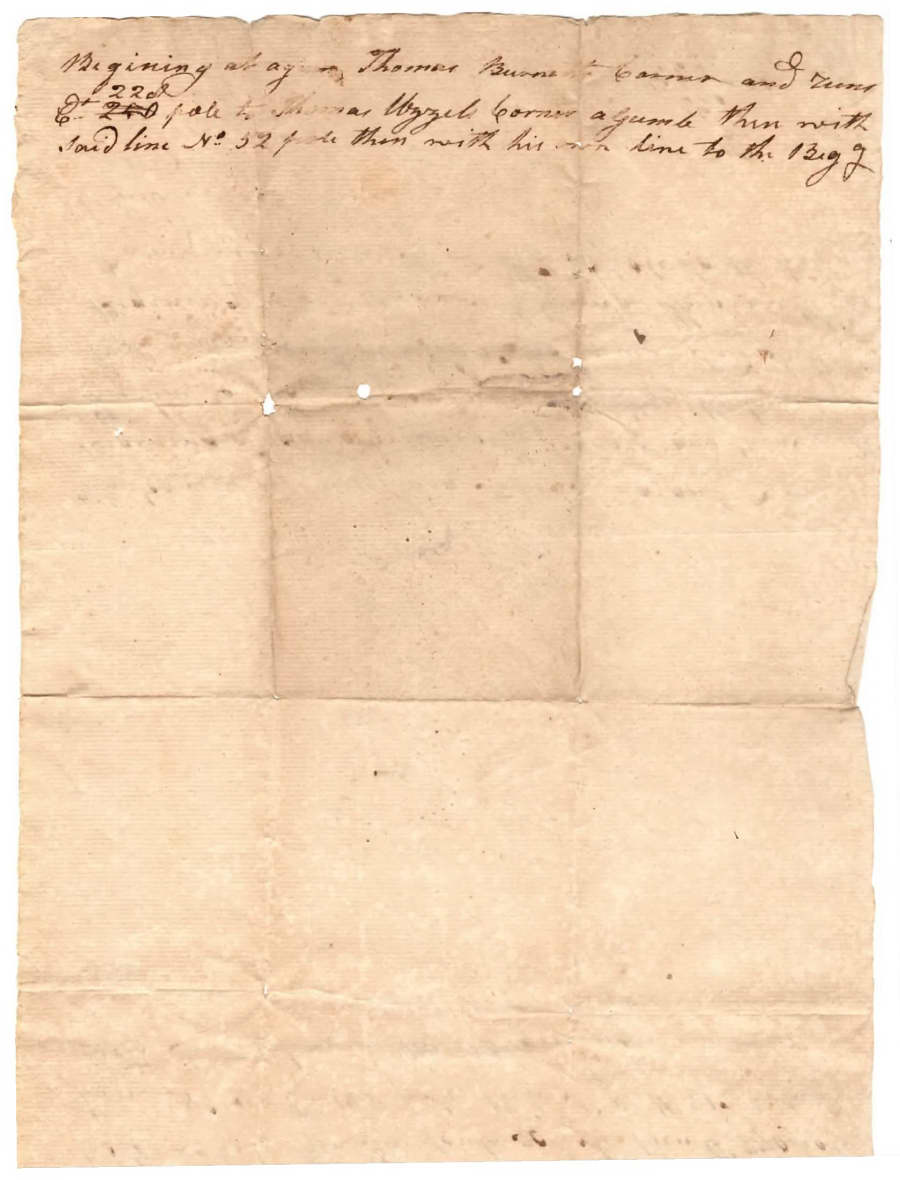 Begining at a Thomas Corner and runs
Et. 228 ~~280~~ pole to Thomas Uzzels Corner a gumb then with
said line No. 52 pole then with his own line to the Beg g